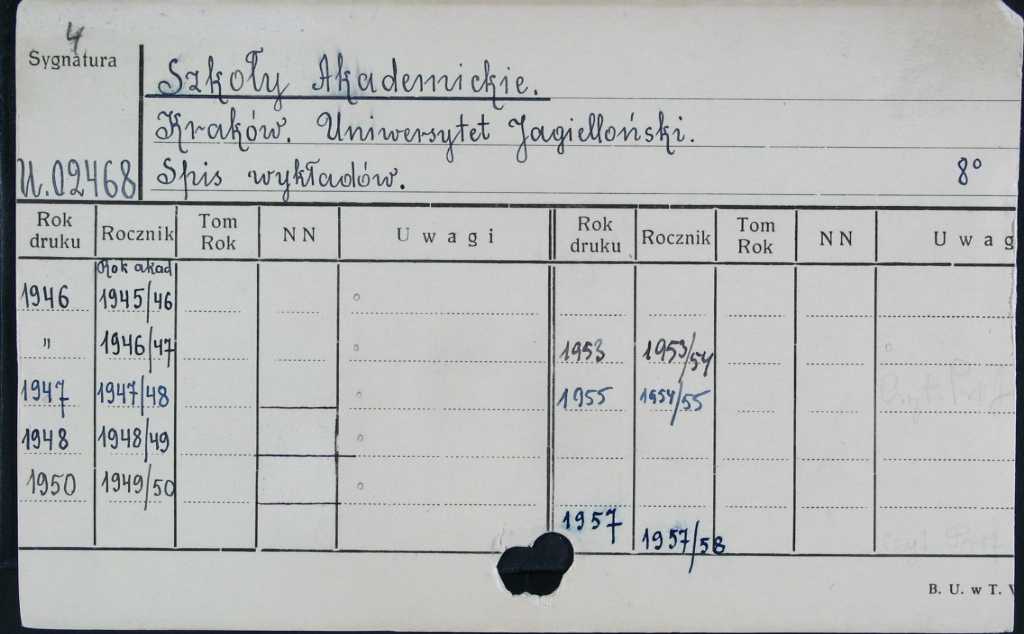 4
Sygnatura
Szkoły Akademickie.
Kraków. Uniwersytet Jagielloński.
U.02468 Spis wykładów. 8°
Rok druku Rocznik Tom Rok NN Uwagi Rok druku Rocznik Tom Rok NN Uwag
Rok akad
1946 1945/46
" 1946/47 1953 1953/54
1947 1947/48 1955 1954/55
1948 1948/49
1950 1949/50
1957 1957/58
B. U. w T.